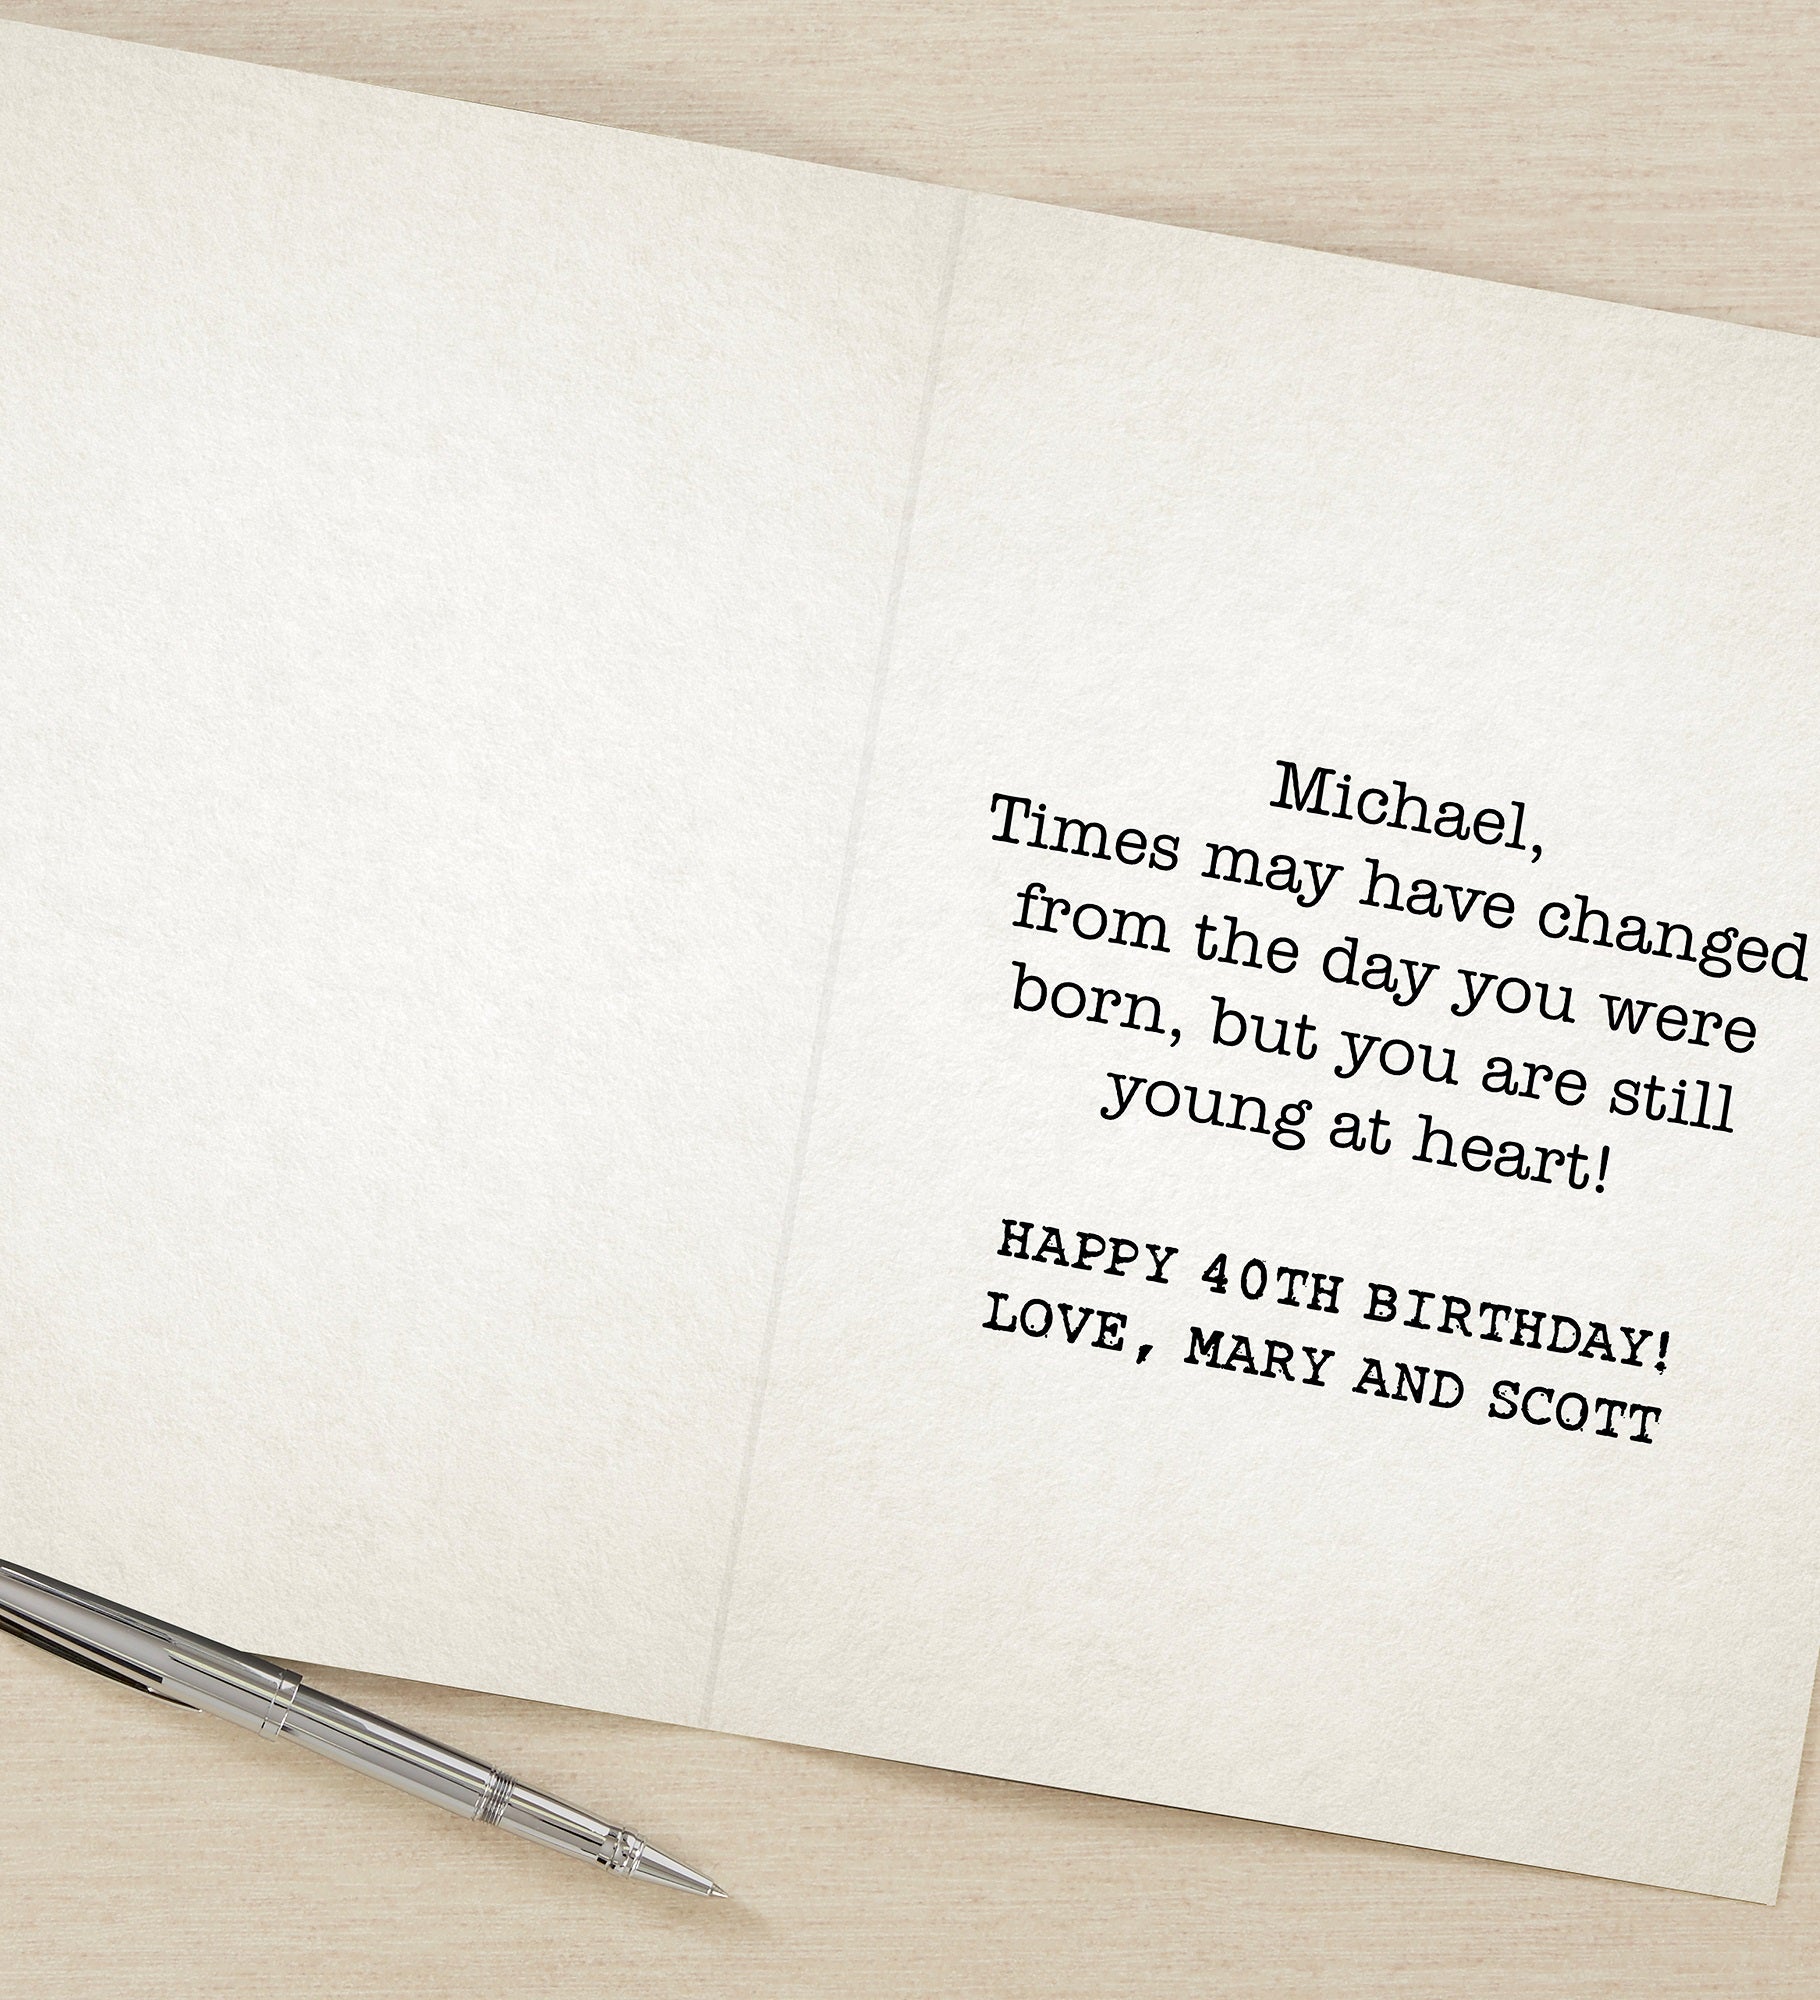 Michael,
Times may have changed
from the day you were
born, but you are still
young at heart!
HAPPY 40TH BIRTHDAY!
LOVE, MARY AND SCOTT